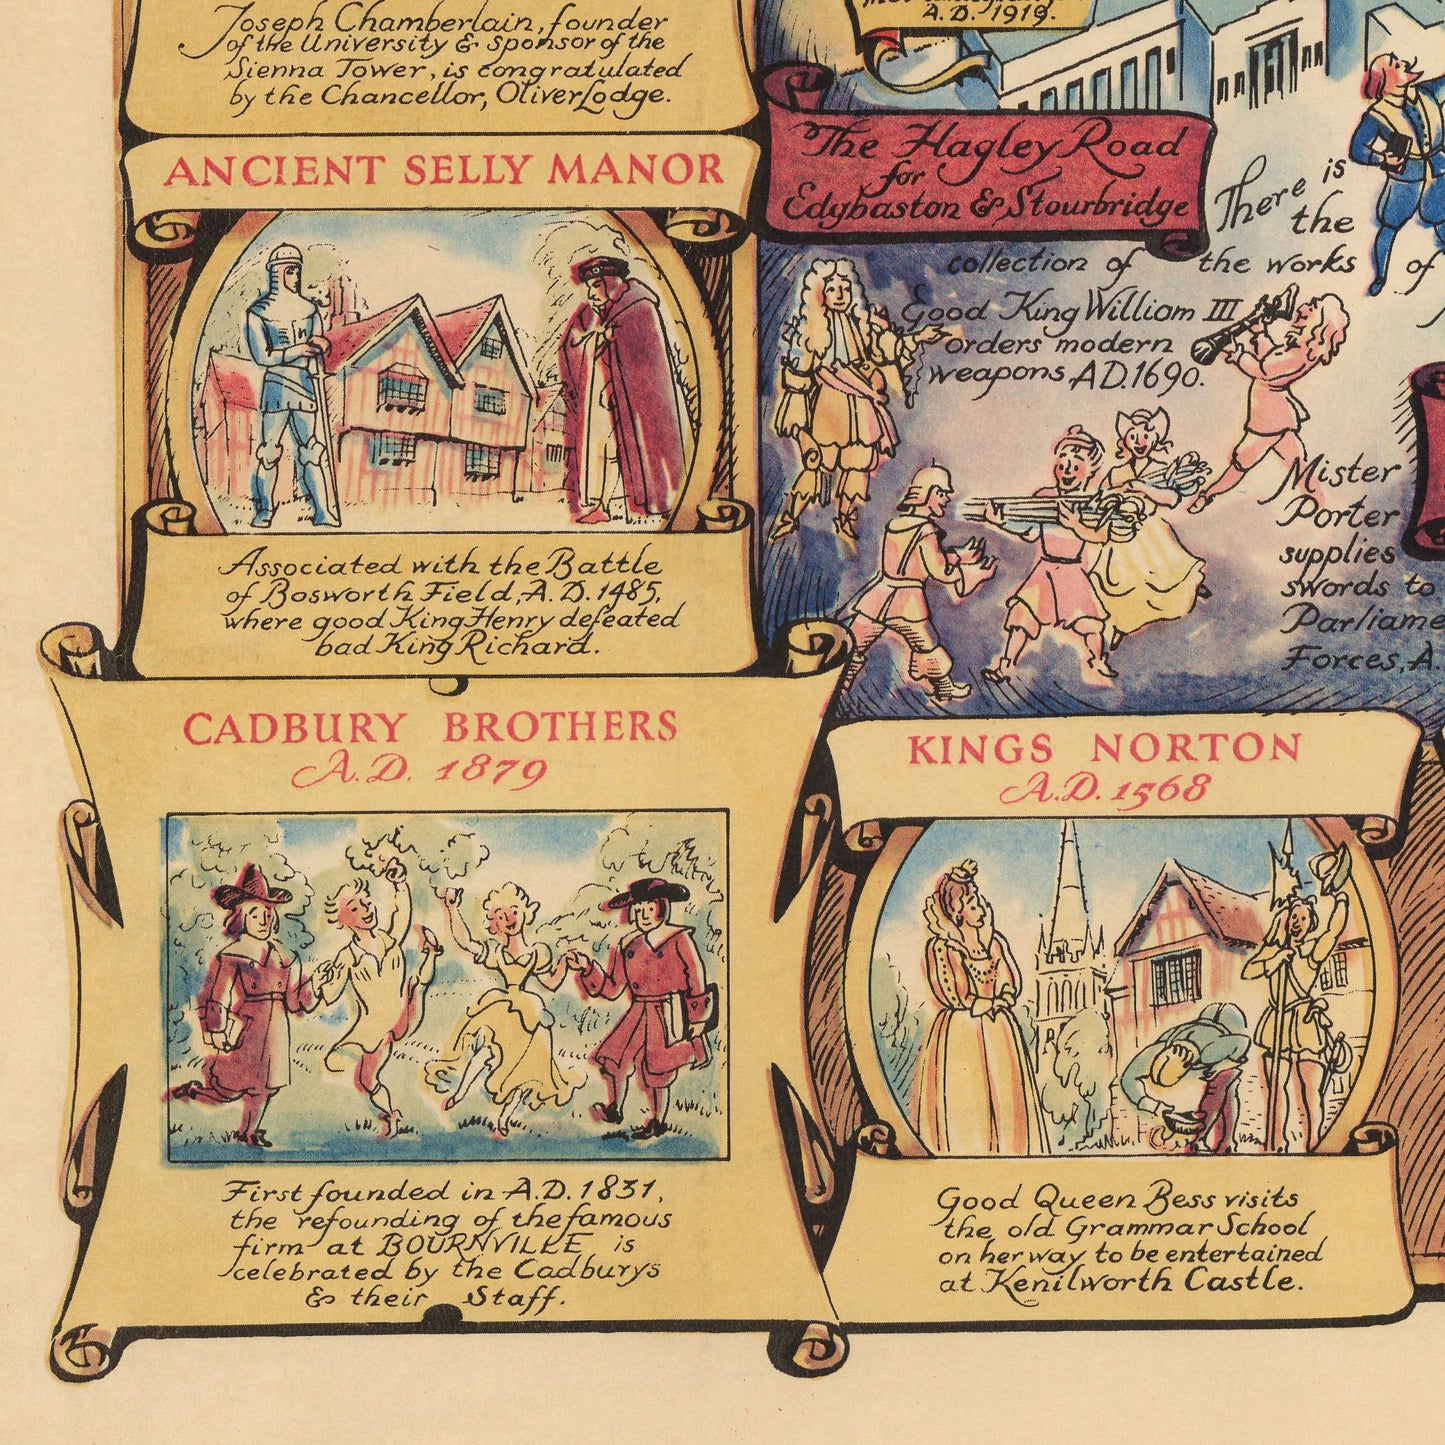 Joseph Chamberlain, founder
of the University & sponsor of the
Sienna Tower, is congratulated
by the Chancellor, Oliver Lodge.
ANCIENT SELLY MANOR
Associated with the Battle
of Bosworth Field, A.D. 1485,
where good King Henry defeated
bad King Richard.
CADBURY BROTHERS
A.D. 1879
First founded in A.D. 1831,
the refounding of the famous
firm at BOURNVILLE is
celebrated by the Cadburys
& their Staff.
A.D. 1919.
The Hagley Road
for
Edgbaston & Stourbridge
There is
the
collection of the works of
Good King William III
orders modern
weapons, A.D. 1690.
Mister
Porter
supplies
swords to
Parliame
Forces, A.
KINGS NORTON
A.D. 1568
Good Queen Bess visits
the old Grammar School
on her way to be entertained
at Kenilworth Castle.